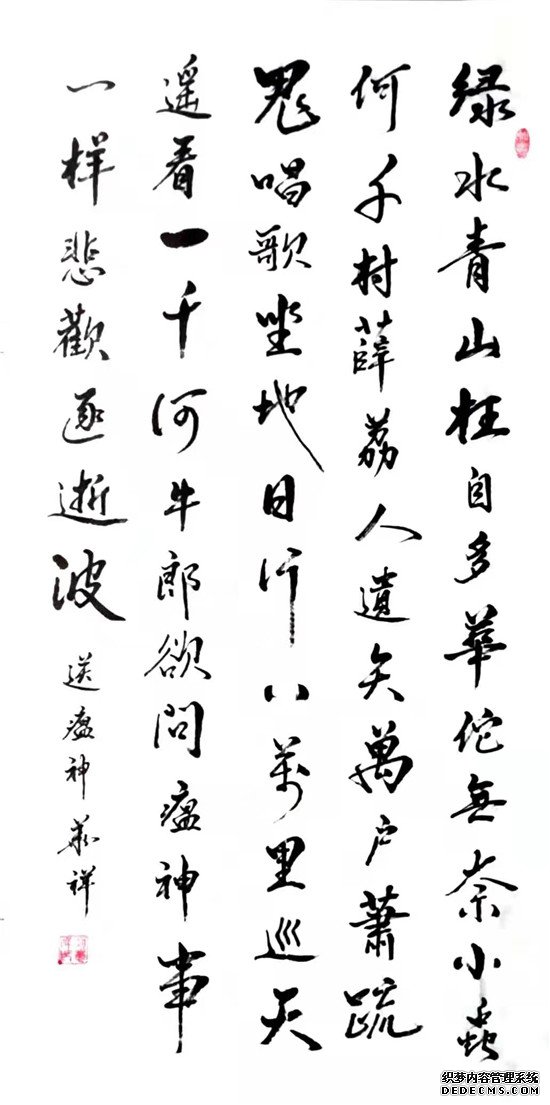 绿水青山枉自多華佗無奈小蟲
何千村薜荔人遺矢萬户蕭疏
鬼唱歌坐地日行八萬里巡天
遥看一千河牛郎欲問瘟神事
一样悲歡逐逝波
送瘟神 祥
织梦内容管理系统
DEDECMS.COM